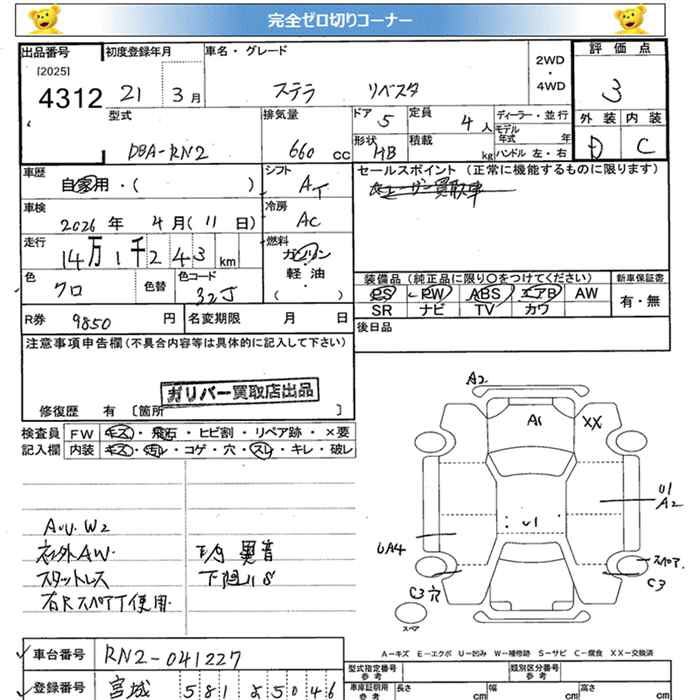 完全ゼロ切りコーナー
出品番号 初度登録年月 車名・グレード 評価点
[2025]
4312 21 3月 ステラ リベスタ 2WD・4WD 3
型式 排気量 ドア 5 定員 4人 ディーラー・並行 外装 内装
DBA-RN2 660cc 形状 HB 積載 kg モデル年式 年 ハンドル 左・右 D C
車歴 自家用・( ) シフト AT セールスポイント(正常に機能するものに限ります)
車検 2026年 4月(11日) 冷房 AC
走行 14万1千243km 燃料 ガソリン 軽油 ( )
色 クロ 色替 色コード 32J
装備品(純正品に限り〇をつけてください) 新車保証書
PS PW ABS エアB AW 有・無
SR ナビ TV カワ
R券 9850円 名変期限 月 日
後日品
注意事項申告欄(不具合内容等は具体的に記入して下さい)
ガリバー買取店出品
修復歴 有 〔箇所 〕
検査員記入欄 FW キズ・飛石・ヒビ割・リペア跡・×要
内装 キズ・汚レ・コゲ・穴・スレ・キレ・破レ
A2
A1 XX
U1
A2
U1
UA4
スペア
C3
C3穴
スペア
AｰU. W2
社外AW.
スタットレス
右Rスペア使用.
異音
A－キズ E－エクボ U－凹み W－補修跡 S－サビ C－腐食 XX－交換済
車台番号 RN2-041227
登録番号 宮城 581
型式指定番号 参考 類別区分番号 参考
車庫証明用 参考 長さ cm 幅 cm 高さ cm